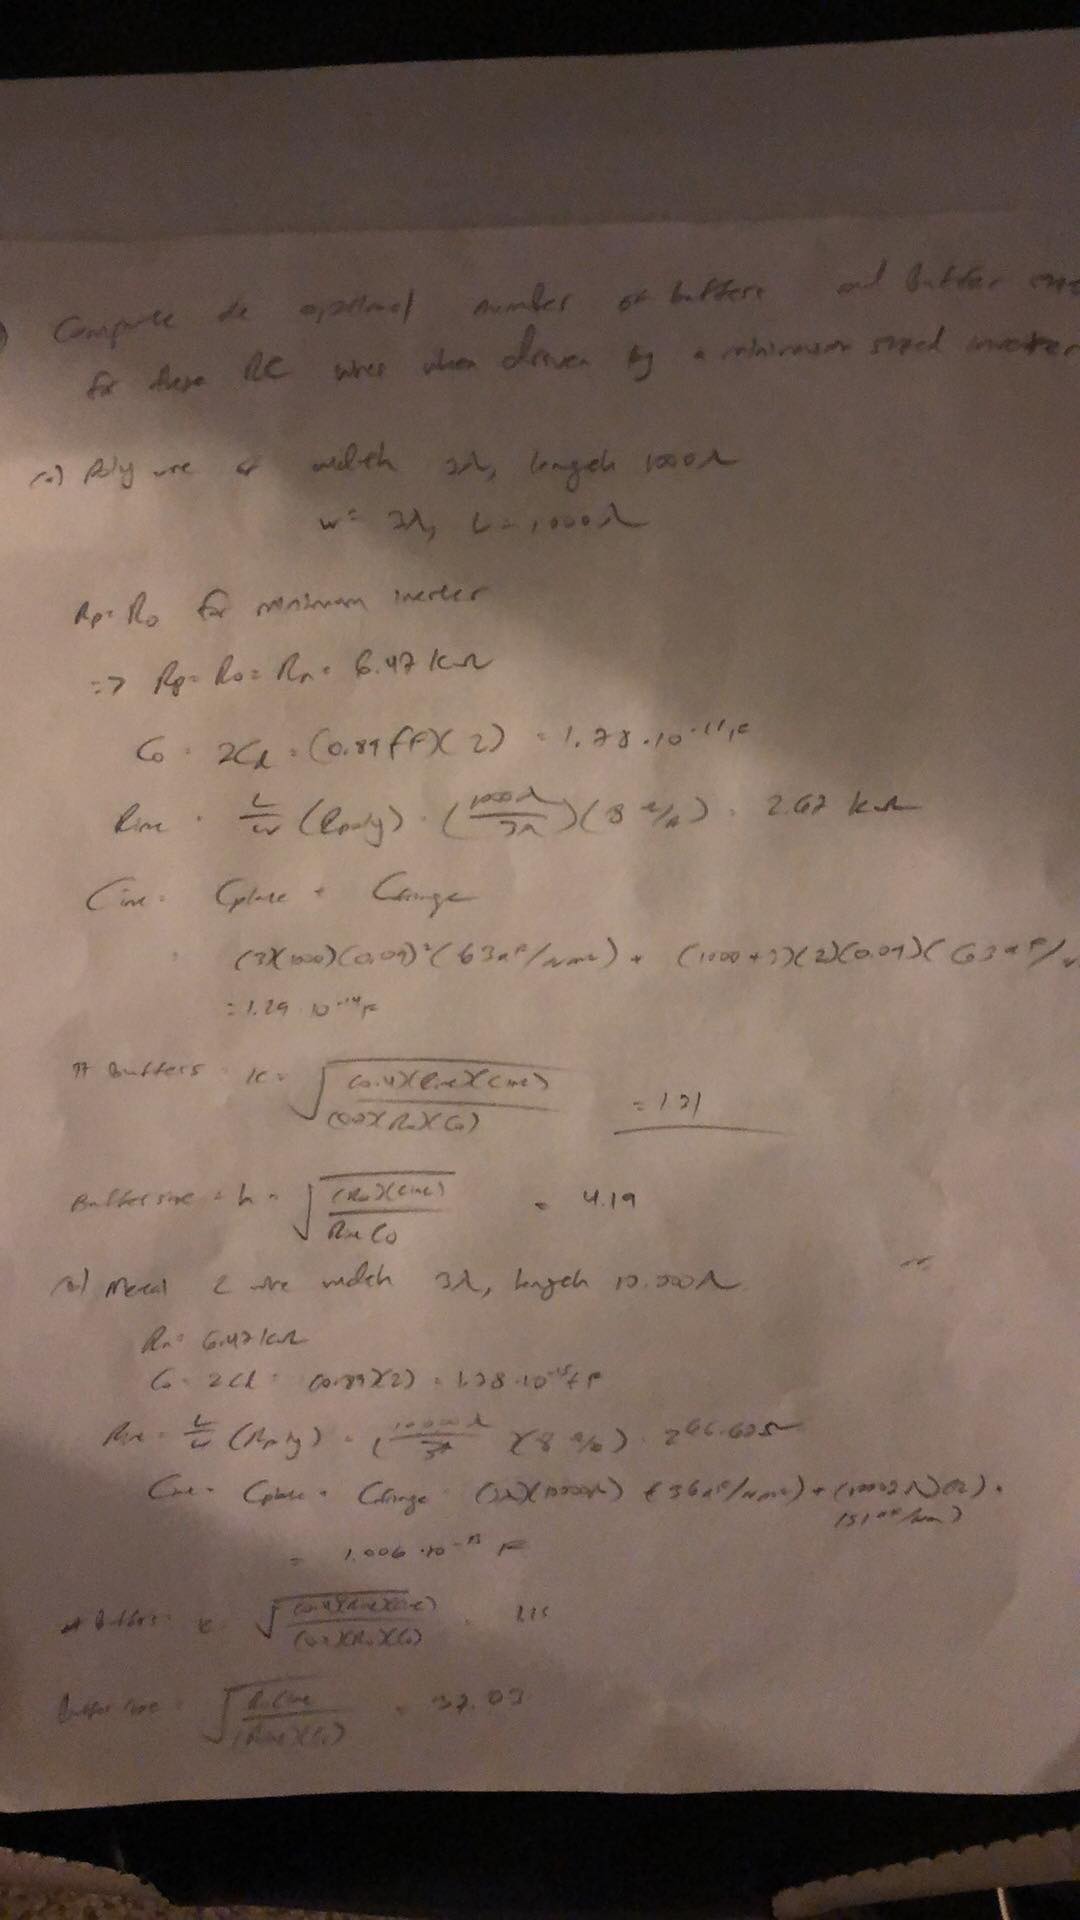 Compute the optimal number of buffers and buffer size
for these RC wires when driven by a minimum sized inverter
(a) Poly wire of width 3λ, length 1000λ
w = 3λ, L = 1000λ
Rp = Ro for minimum inverter
=> Rp = Ro = Rn = 6.47 kΩ
Co = 2Cd = (0.89fF)(2) = 1.78 · 10 F
Rine = L/w (Rpoly) = (1000λ/3λ)(8 Ω/□) = 2.67 kΩ
Cine = Cplate + Cfringe
= (3)(1000)(0.09)²(63aF/μm²) + (1000+3)(2)(0.09)(63aF/
= 1.29 · 10⁻¹⁴ F
# Buffers k = √((0.4)(Rine)(Cine)/(0.7)(Ro)(Co)) = 1.21
Buffer size = h = √((Ro)(Cine)/Rine Co) = 4.19
Metal 2 wire width 3λ, length 10.000λ
Rn = 6.47 kΩ
Co = 2Cd = (0.89)(2) = 1.78 · 10⁻¹⁵ F
Rine = L/w (Rpoly) = (10000λ/3λ)(8 Ω/□) = 266.60Ω
Cine = Cplate + Cfringe = (3λ)(10000λ) (36aF/μm²) + (10003λ)(2) ·
(51aF/μm)
= 1.006 · 10⁻¹³ F
# buffers = k = √((0.4)(Rine)(Cine)/(0.7)(Ro)(Co)) =
Buffer size = √(Ro Cine/(Rine)(Co)) = 37.03